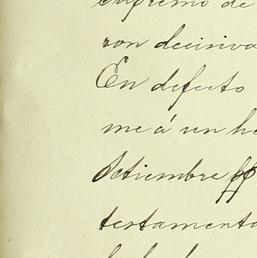 supremo de
ron decisiva
En defecto
me á un he
Setiembre
testamento